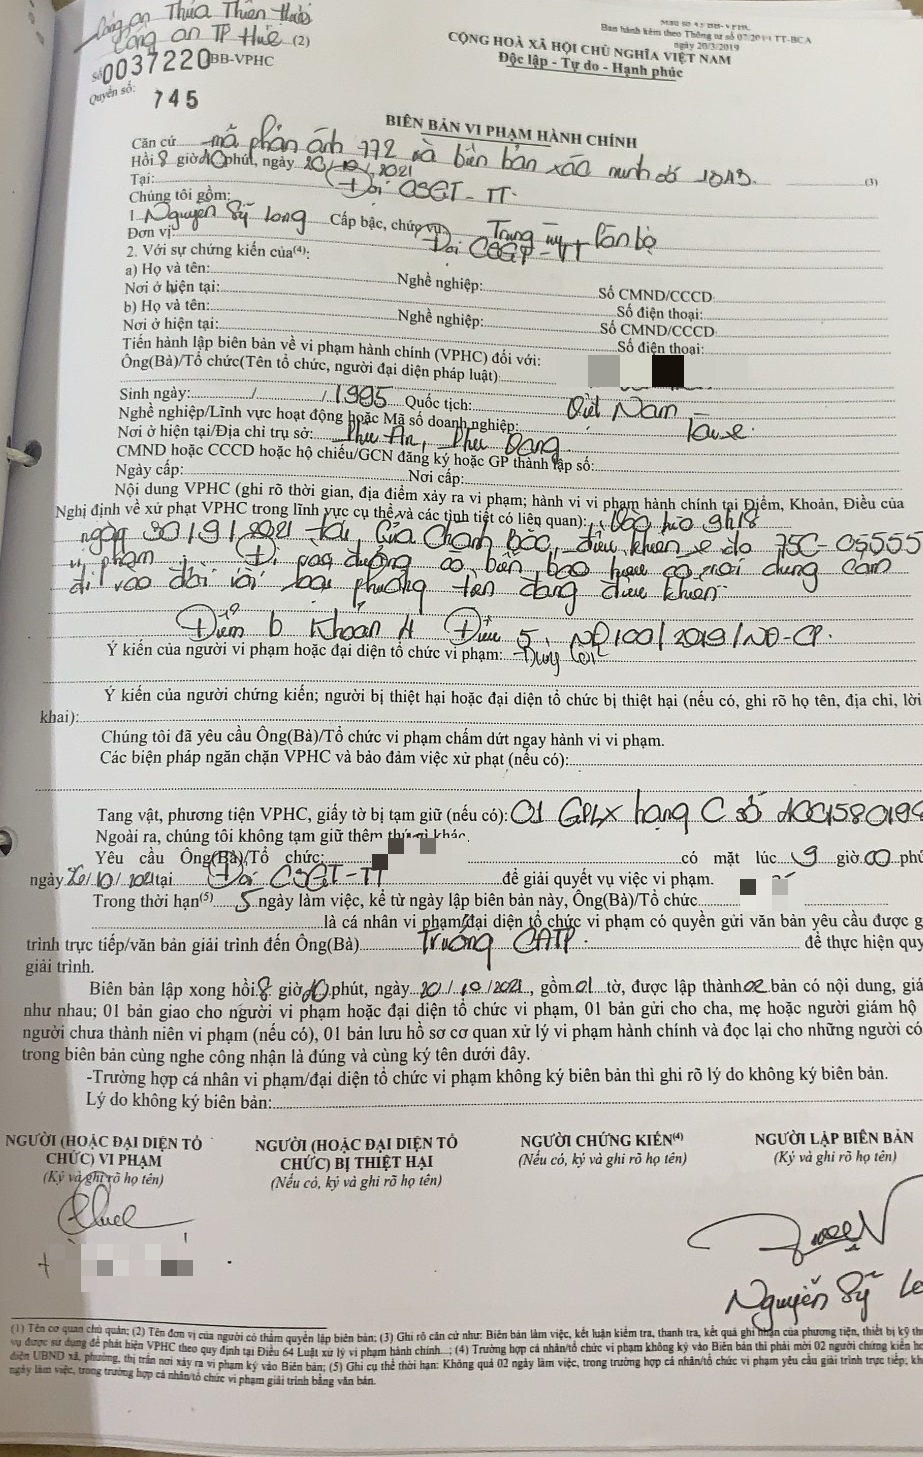 Công an Thừa Thiên Huế
Công an TP Huế (2)
Số 0037220 BB-VPHC
Quyển số: 745
Ban hành kèm theo Thông tư số 07/2019/TT-BCA
ngày 20/3/2019
CỘNG HOÀ XÃ HỘI CHỦ NGHĨA VIỆT NAM
Độc lập - Tự do - Hạnh phúc
BIÊN BẢN VI PHẠM HÀNH CHÍNH
Căn cứ mã phản ánh 772 và biên bản xác minh số (3)
Hồi 8 giờ 40 phút, ngày 20/10/2021
Tại: Đội CSGT-TT.
Chúng tôi gồm:
1. Nguyễn Sỹ Long Cấp bậc, chức vụ: Trung uý Cán bộ
Đơn vị: Đội CSGT-TT
2. Với sự chứng kiến của(4):
a) Họ và tên: Nghề nghiệp: Số CMND/CCCD
Nơi ở hiện tại: Số điện thoại:
b) Họ và tên: Nghề nghiệp: Số CMND/CCCD
Nơi ở hiện tại: Số điện thoại:
Tiến hành lập biên bản về vi phạm hành chính (VPHC) đối với:
Ông(Bà)/Tổ chức(Tên tổ chức, người đại diện pháp luật)
Sinh ngày: / /1995 Quốc tịch: Việt Nam
Nghề nghiệp/Lĩnh vực hoạt động hoặc Mã số doanh nghiệp:
Nơi ở hiện tại/Địa chỉ trụ sở: Phú An, Phú Vang
CMND hoặc CCCD hoặc hộ chiếu/GCN đăng ký hoặc GP thành lập số:
Ngày cấp: Nơi cấp:
Nội dung VPHC (ghi rõ thời gian, địa điểm xảy ra vi phạm; hành vi vi phạm hành chính tại Điểm, Khoản, Điều của
Nghị định về xử phạt VPHC trong lĩnh vực cụ thể và các tình tiết có liên quan): Vào lúc 9h18
ngày 30/9/2021 tại Cửa Chánh Bắc, điều khiển xe ôtô 75C-05555
vi phạm Đi vào đường có biển báo hiệu có nội dung cấm
đi vào đối với loại phương tiện đang điều khiển
Điểm b Khoản 4 Điều 5, NĐ100/2019/NĐ-CP.
Ý kiến của người vi phạm hoặc đại diện tổ chức vi phạm: Đúng lỗi
Ý kiến của người chứng kiến; người bị thiệt hại hoặc đại diện tổ chức bị thiệt hại (nếu có, ghi rõ họ tên, địa chỉ, lời
khai):
Chúng tôi đã yêu cầu Ông(Bà)/Tổ chức vi phạm chấm dứt ngay hành vi vi phạm.
Các biện pháp ngăn chặn VPHC và bảo đảm việc xử phạt (nếu có):
Tang vật, phương tiện VPHC, giấy tờ bị tạm giữ (nếu có): 01 GPLX hạng C số
Ngoài ra, chúng tôi không tạm giữ thêm thứ gì khác.
Yêu cầu Ông(Bà)/Tổ chức: có mặt lúc 9 giờ 00 phú
ngày 26/10/2021 tại Đội CSGT-TT để giải quyết vụ việc vi phạm.
Trong thời hạn(5) 5 ngày làm việc, kể từ ngày lập biên bản này, Ông(Bà)/Tổ chức
là cá nhân vi phạm/đại diện tổ chức vi phạm có quyền gửi văn bản yêu cầu được g
trình trực tiếp/văn bản giải trình đến Ông(Bà) Trưởng CATP. để thực hiện quy
giải trình.
Biên bản lập xong hồi 8 giờ 40 phút, ngày 20/10/2021, gồm 01 tờ, được lập thành 02 bản có nội dung, giá
như nhau; 01 bản giao cho người vi phạm hoặc đại diện tổ chức vi phạm, 01 bản gửi cho cha, mẹ hoặc người giám hộ
người chưa thành niên vi phạm (nếu có), 01 bản lưu hồ sơ cơ quan xử lý vi phạm hành chính và đọc lại cho những người có
trong biên bản cùng nghe công nhận là đúng và cùng ký tên dưới đây.
-Trường hợp cá nhân vi phạm/đại diện tổ chức vi phạm không ký biên bản thì ghi rõ lý do không ký biên bản.
Lý do không ký biên bản:
NGƯỜI (HOẶC ĐẠI DIỆN TỔ CHỨC) VI PHẠM
(Ký và ghi rõ họ tên)
NGƯỜI (HOẶC ĐẠI DIỆN TỔ CHỨC) BỊ THIỆT HẠI
(Nếu có, ký và ghi rõ họ tên)
NGƯỜI CHỨNG KIẾN(4)
(Nếu có, ký và ghi rõ họ tên)
NGƯỜI LẬP BIÊN BẢN
(Ký và ghi rõ họ tên)
Nguyễn Sỹ Lo
(1) Tên cơ quan chủ quản; (2) Tên đơn vị của người có thẩm quyền lập biên bản; (3) Ghi rõ căn cứ như: Biên bản làm việc, kết luận kiểm tra, thanh tra, kết quả ghi nhận của phương tiện, thiết bị kỹ thu
vụ được sử dụng để phát hiện VPHC theo quy định tại Điều 64 Luật xử lý vi phạm hành chính...; (4) Trường hợp cá nhân/tổ chức vi phạm không ký vào Biên bản thì phải mời 02 người chứng kiến ho
diện UBND xã, phường, thị trấn nơi xảy ra vi phạm ký vào Biên bản; (5) Ghi cụ thể thời hạn: Không quá 02 ngày làm việc, trong trường hợp cá nhân/tổ chức vi phạm yêu cầu giải trình trực tiếp; kh
ngày làm việc, trong trường hợp cá nhân/tổ chức vi phạm giải trình bằng văn bản.